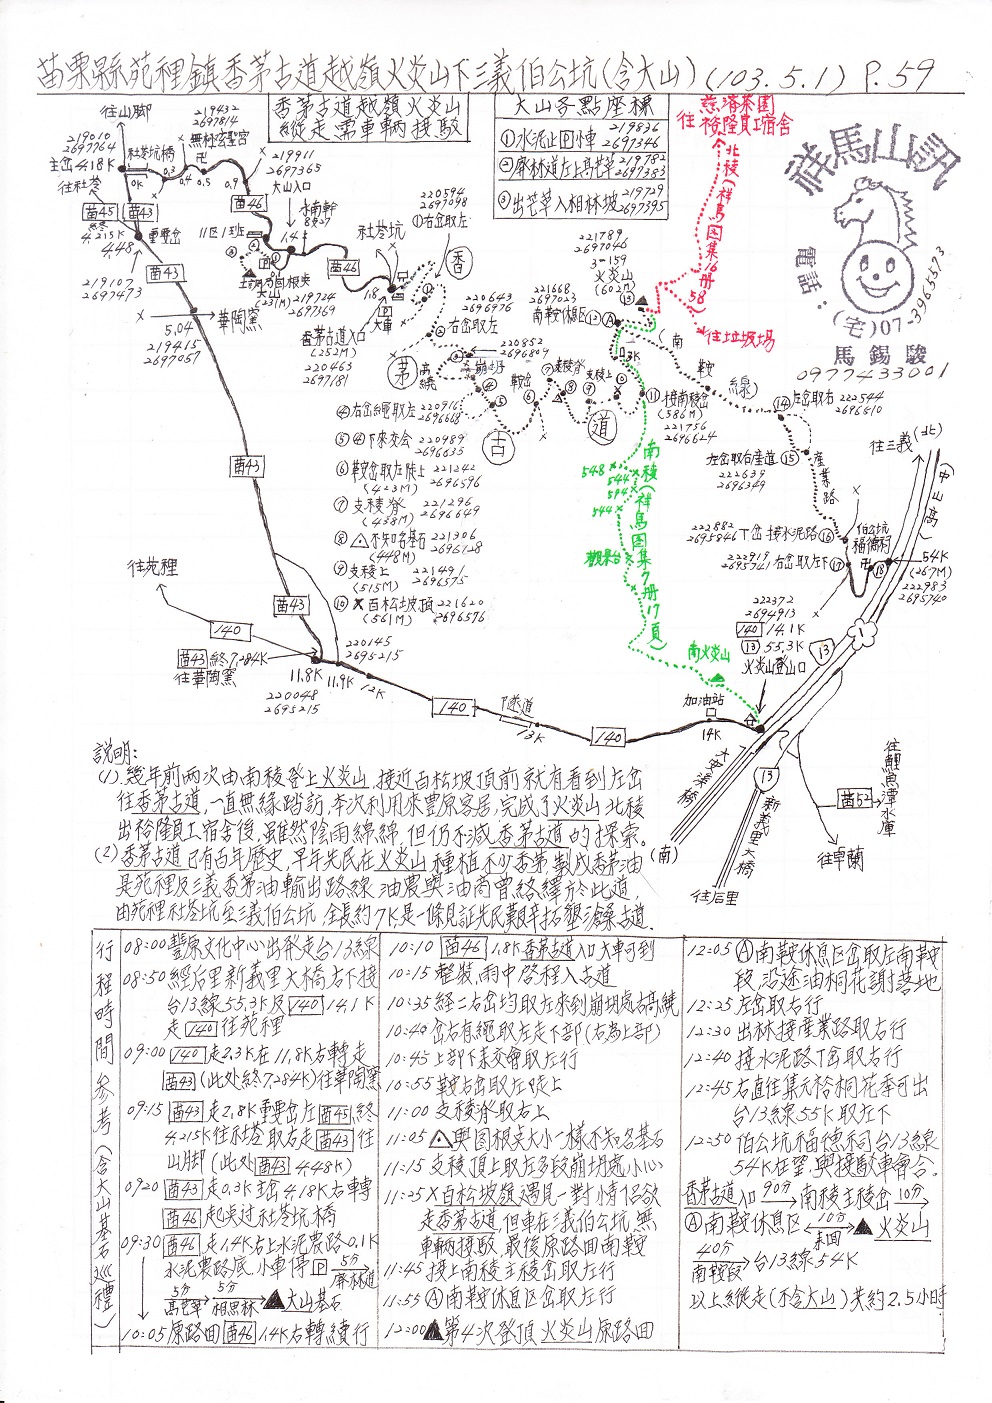 苗栗縣苑裡鎮香茅古道越嶺火炎山下三義伯公坑(含大山)(103.5.1) P.59
香茅古道越嶺火炎山
縱走需車輛接駁
大山各點座標
①水泥止回小車 219836 2697346
②廢林道左上高芒草 219782 2697383
③出芒草入相林坡 219729 2697395
慈濟茶園
往裕隆員工宿舍
北稜(祥馬图集16册58)
往垃圾場
祥馬山訊
電話:
(宅)07-3965573
馬錫駿
0977433001
往山脚
219010
2697764
主岔4.18K
社苓坑橋
219432
2697814
無極玄聖宮
0K
0.3
0.4
0.5
0.9
219911
2697365
大山入口
往社苓
苗45
終4.215K
苗43
4.48
重要岔
苗46
11区1班
水南幹
8右27
1.4
大山
(231M)
219724
2697369
苗46
社苓坑
1.8
大車
220594
2697098
①右岔取左
香茅古道入口
(252M)
220463
2697181
香
茅
古
道
苗43
219107
2697473
往華陶窯
5.04
219415
2697057
220643
2696976
②右岔取左
220852
2696809
崩坍
高繞
鞍岔
支稜脊
支稜上
④右岔繩取左 220916 2696668
⑤④下來交会 220989 2696635
⑥鞍岔取左陡上 221242
(423M) 2696596
⑦支稜脊 221296
(438M) 2696649
⑧不知名基石 221306
(448M) 2696728
⑨支稜上 221491
(515M) 2696575
⑩百松坡頂 221620
(561M) 2696576
221789
2697046
3-159
火炎山
(602M)
221668
2697023
南鞍休憩区
⑬
⑫
3K
⑪接南稜岔
(586M)
221756
2696624
南鞍線
⑭左岔取右 222544
2696510
左岔取右產道⑮
222639
2696349
產業路
222882
2695846 丁岔接水泥路⑯
222919
2695741 右岔取左下⑰
伯公坑
福德祠
⑱
54K
(267M)
222983
2695740
往三義(北)
中山高
南稜(祥馬图集7册17頁)
548
544
594
544
觀景台
南火炎山
222372
2694913
140 14.1K
13 55.3K
火炎山登山口
苗43
往苑裡
140
苗43
苗43終7.284K
往華陶窯
11.8K
220048
2695215
220145
2695215
11.9K
12K
140
隧道
13K
140
加油站
14K
1
13
大安溪橋
13
新義里大橋
往后里
(南)
苗52
往鯉魚潭水庫
往卓蘭
説明:
(1).幾年前兩次由南稜登上火炎山,接近百松坡頂前就有看到左岔
往香茅古道,一直無緣踏訪,本次利用來豊原客居,完成了火炎山北稜
出裕隆員工宿舍後,雖然陰雨綿綿,但仍不減香茅古道的探索.
(2).香茅古道已有百年歷史,早年先民在火炎山種植不少香茅,製成香茅油
是苑裡及三義香茅油輸出路線,油農與油商曾絡繹於此道,
由苑裡社苓坑至三義伯公坑,全長約7K,是一條見証先民艱辛拓墾滄桑古道.
行程時間參考(含大山基石巡禮)
08:00豐原文化中心出發走台13線
08:50經后里新義里大橋右下接
台13線55.3K及140 14.1K
走140往苑裡
09:00 140走2.3K在11.8K右轉走
苗43(此处終7.284K)往華陶窯
09:15 苗43走2.8K重要岔左苗45終
4.215K往社苓取右走苗43往
山脚(此处苗43 4.48K)
0920 苗43走0.3K主岔4.18K右轉
苗46起点过社苓坑橋
09:30 苗46走1.4K右上水泥農路0.1K
水泥農路底小車停P 5分 廢林道
5分 高芒草 5分 相思林 大山基石
10:05原路回苗46 1.4K右轉續行
10:10 苗46 1.8K香茅古道入口大車可到
10:15 整裝,雨中啓程入古道
10:35 經二右岔均取左來到崩坍處右高繞
10:40 岔右有繩取左走下部(右為上部)
10:45上部下來交會取左行
10:55 鞍右岔取左陡上
11:00 支稜脊取右上
11:05 與图根点大小一樣不知名基石
11:15 支稜頂上取左多段崩坍處小心
11:25 X百松坡嶺遇見一對小情侶欲
走香茅古道,但車在三義伯公坑,無
車輛接駁,最後原路回南鞍
11:45 接上南稜主稜岔取左行
11:55 Ⓐ南鞍休息区岔取左行
12:00 第4次登頂火炎山原路回
12:05 Ⓐ南鞍休息区岔取左南鞍
段,沿途油桐花謝落地
12:25 左岔取右行
12:30 出林接産業路取右行
12:40 接水泥路丁岔取右行
12:45 右直往集元裕桐花季可出
台13線55K取左下
12:50 伯公坑福德祠台13線
54K在望,與接駁車會合.
香茅古道入口 90分 南稜主稜岔 10分
Ⓐ南鞍休息区 10分 來回 火炎山
40分 南鞍段 台13線54K
以上縱走(不含大山)共約2.5小時